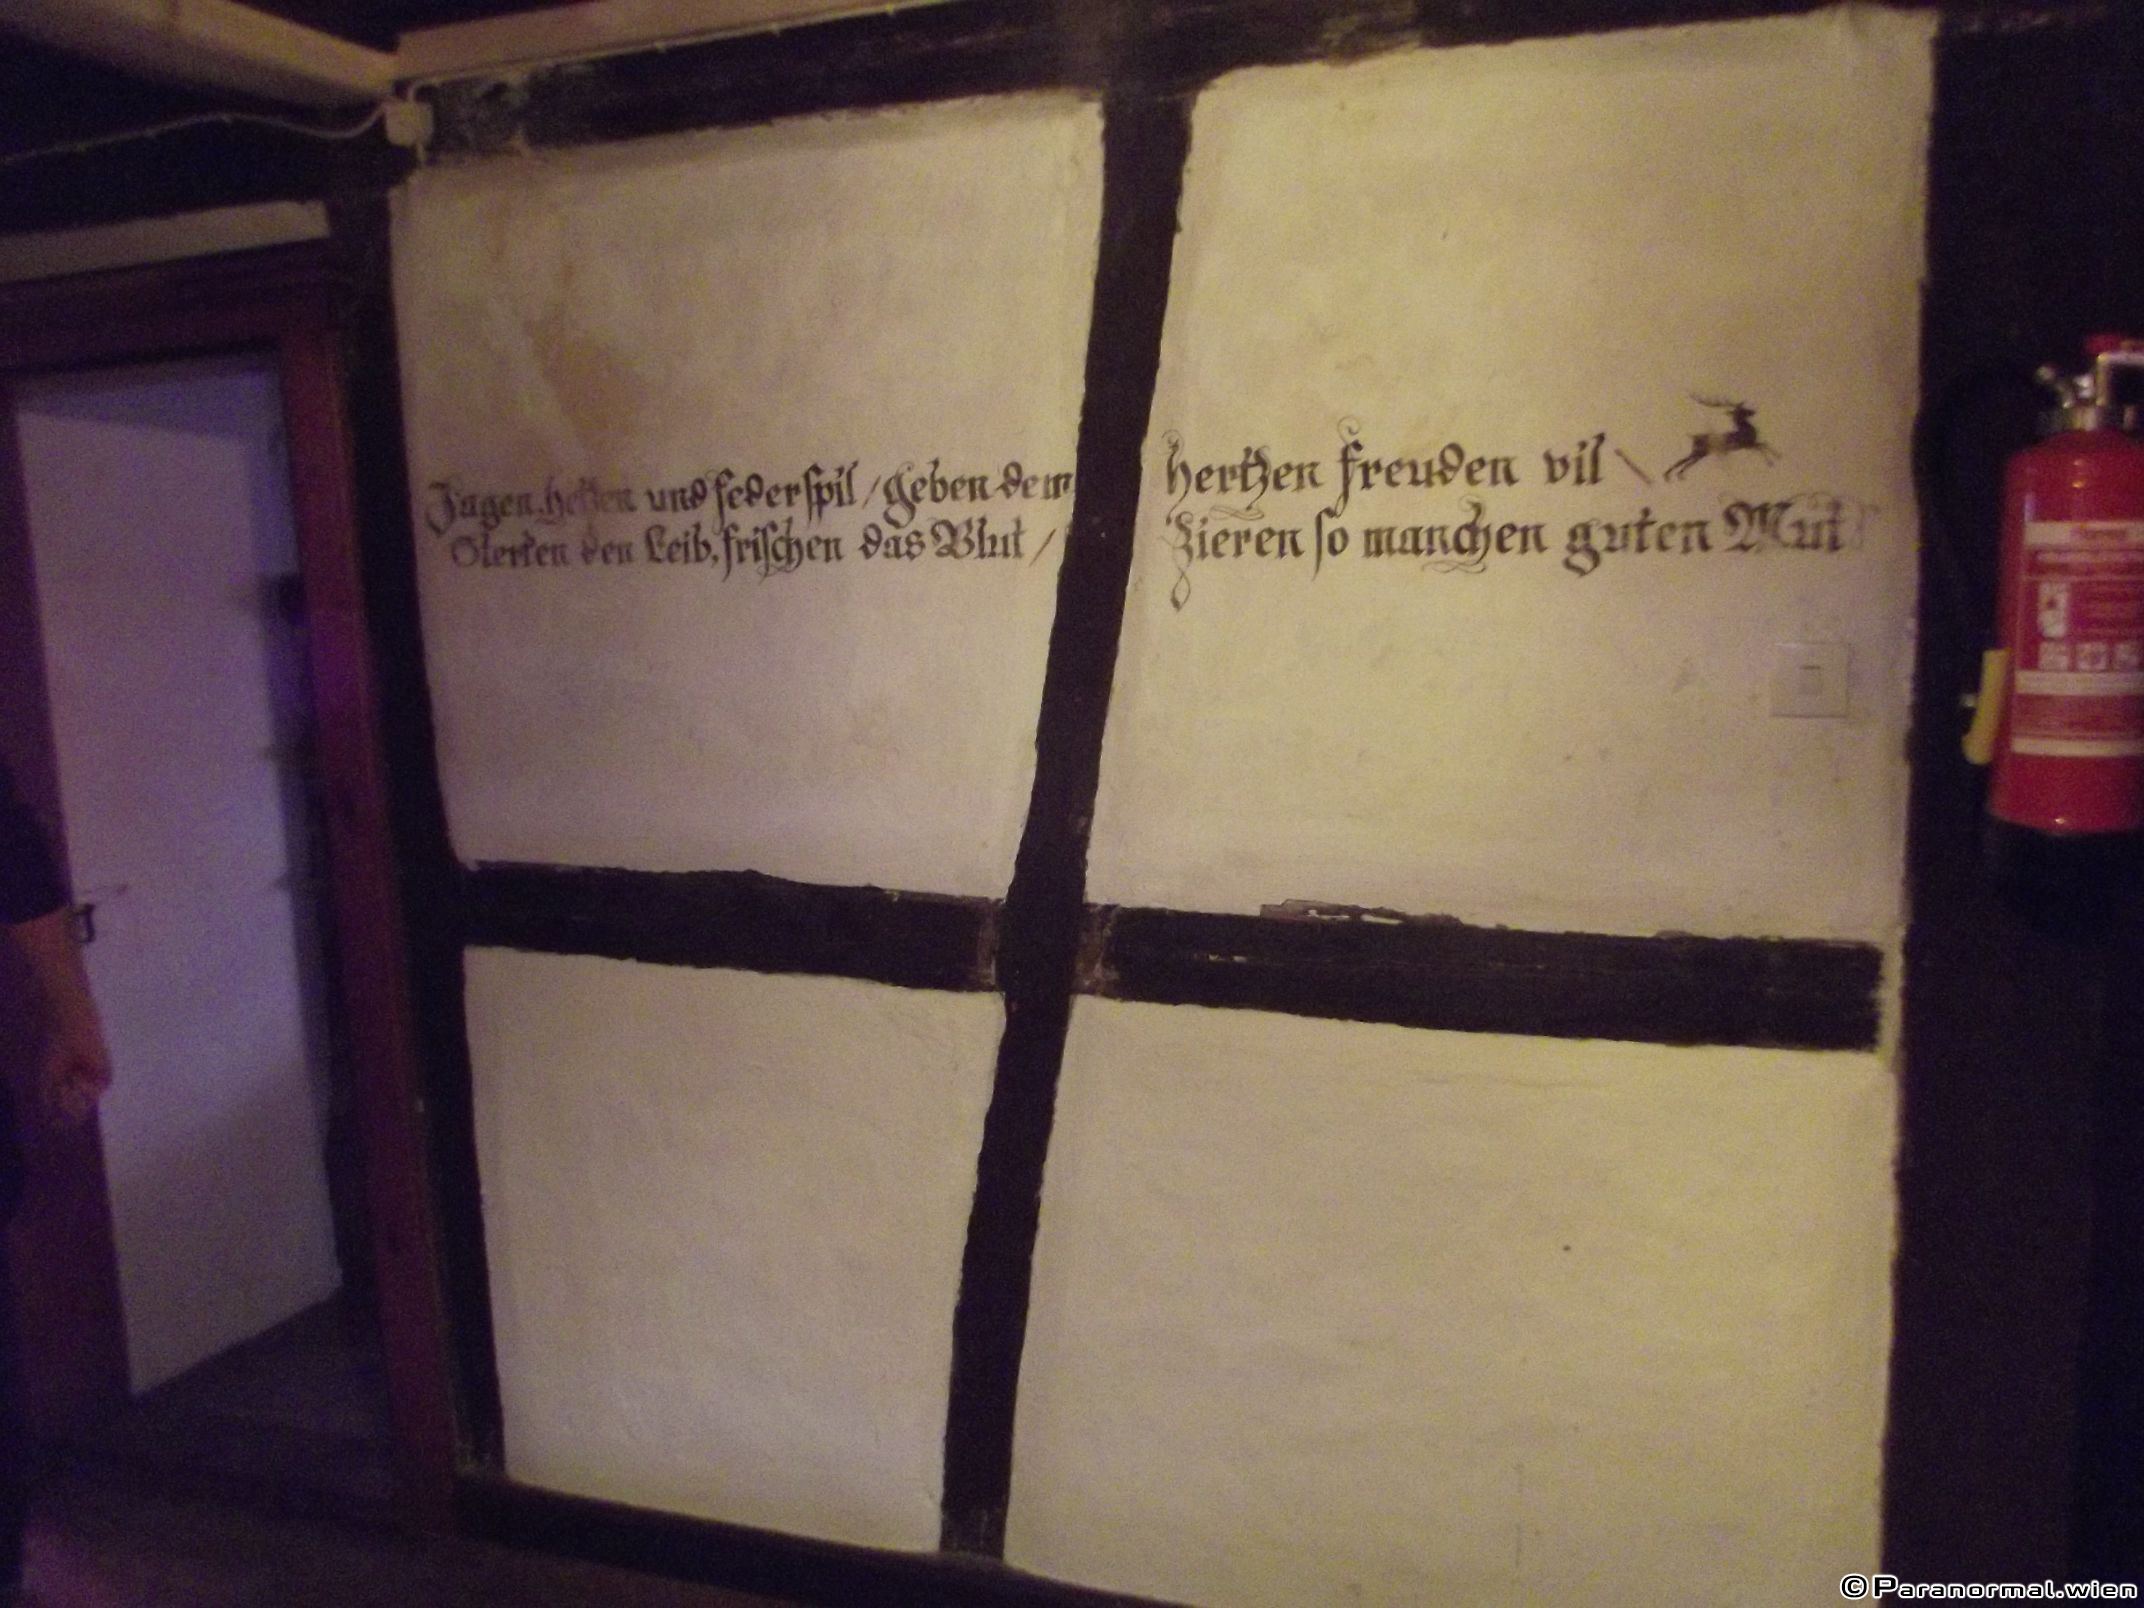 Jagen, hetzen und federspil / geben dem hertzen freuden vil \
Sterken den Leib, frischen das Blut / Zieren so manchen guten Mut
©Paranormal.wien